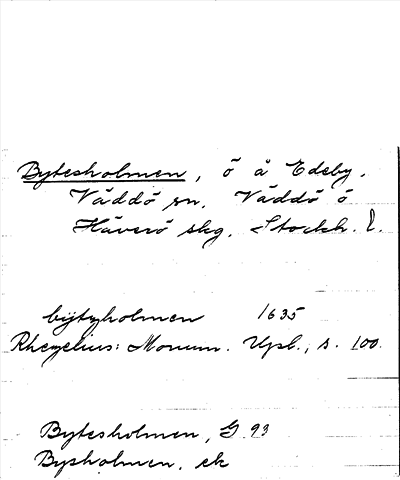 Bytesholmen, ö å Edeby,
Väddö sn, Väddö o
Häverö skg. Stockh. l.
bijtzholmen 1635
Rhezelius: Monum. Upl., s. 100.
Bytesholmen, G 93
Bysholmen, ek